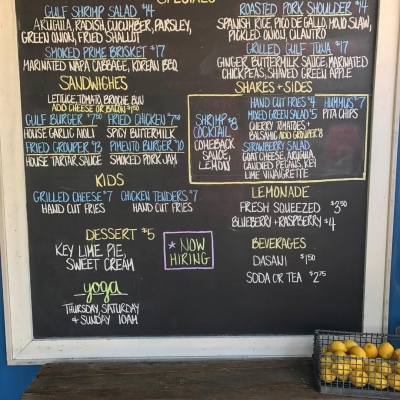 SPECIALS
GULF SHRIMP SALAD $14
ARUGULA, RADISH, CUCUMBER, PARSLEY,
GREEN ONION, FRIED SHALLOT
SMOKED PRIME BRISKET $17
MARINATED NAPA CABBAGE, KOREAN BBQ
ROASTED PORK SHOULDER $14
SPANISH RICE, PICO DE GALLO, MOJO SLAW,
PICKLED ONION, CILANTRO
GRILLED GULF TUNA $17
GINGER BUTTERMILK SAUCE, MARINATED
CHICKPEAS, SHAVED GREEN APPLE
SANDWICHES
LETTUCE, TOMATO, BRIOCHE BUN
ADD CHEESE OR BACON
GULF BURGER
HOUSE GARLIC AIOLI
FRIED CHICKEN
SPICY BUTTERMILK
FRIED GROUPER $13
HOUSE TARTAR SAUCE
PIMENTO BURGER $10
SMOKED PORK JAM
SHARES + SIDES
SHRIMP $8
COCKTAIL
COMEBACK
SAUCE,
LEMON
HAND CUT FRIES $4
HUMMUS $7
PITA CHIPS
MIXED GREEN SALAD $5
CHERRY TOMATOES +
BALSAMIC ADD GROUPER $8
STRAWBERRY SALAD
GOAT CHEESE, ARUGULA,
CANDIED PECANS, KEY
LIME VINAIGRETTE
KIDS
GRILLED CHEESE $7
HAND CUT FRIES
CHICKEN TENDERS $7
HAND CUT FRIES
LEMONADE
FRESH SQUEEZED $3.50
BLUEBERRY + RASPBERRY $4
DESSERT $5
KEY LIME PIE,
SWEET CREAM
* NOW
HIRING
BEVERAGES
DASANI $1.50
SODA OR TEA $2.75
yoga
THURSDAY, SATURDAY
& SUNDAY 10AM